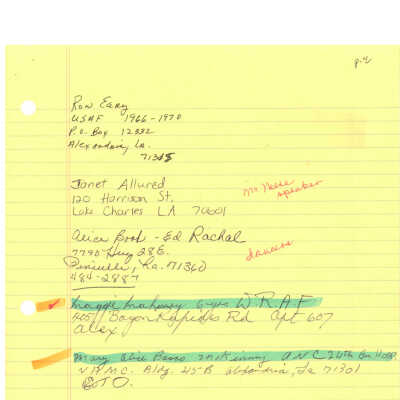 p.2
Ron Eary
USAF 1966-1970
P.O. Box 12332
Alexandria, La.
71315
Janet Allured
120 Harrison St.
Lake Charles LA 70601
speaker
Alice Book - Ed Rachal
7790 Hwy 28E.
Pineville, La. 71360
484-2887
dancers
Maggie WRAF
Bayou Rapides Rd Apt 607
Alex
Mary Alice McKinney ANC 24th
V.A.M.C. Bldg. 45-B Alexandria, La 71301